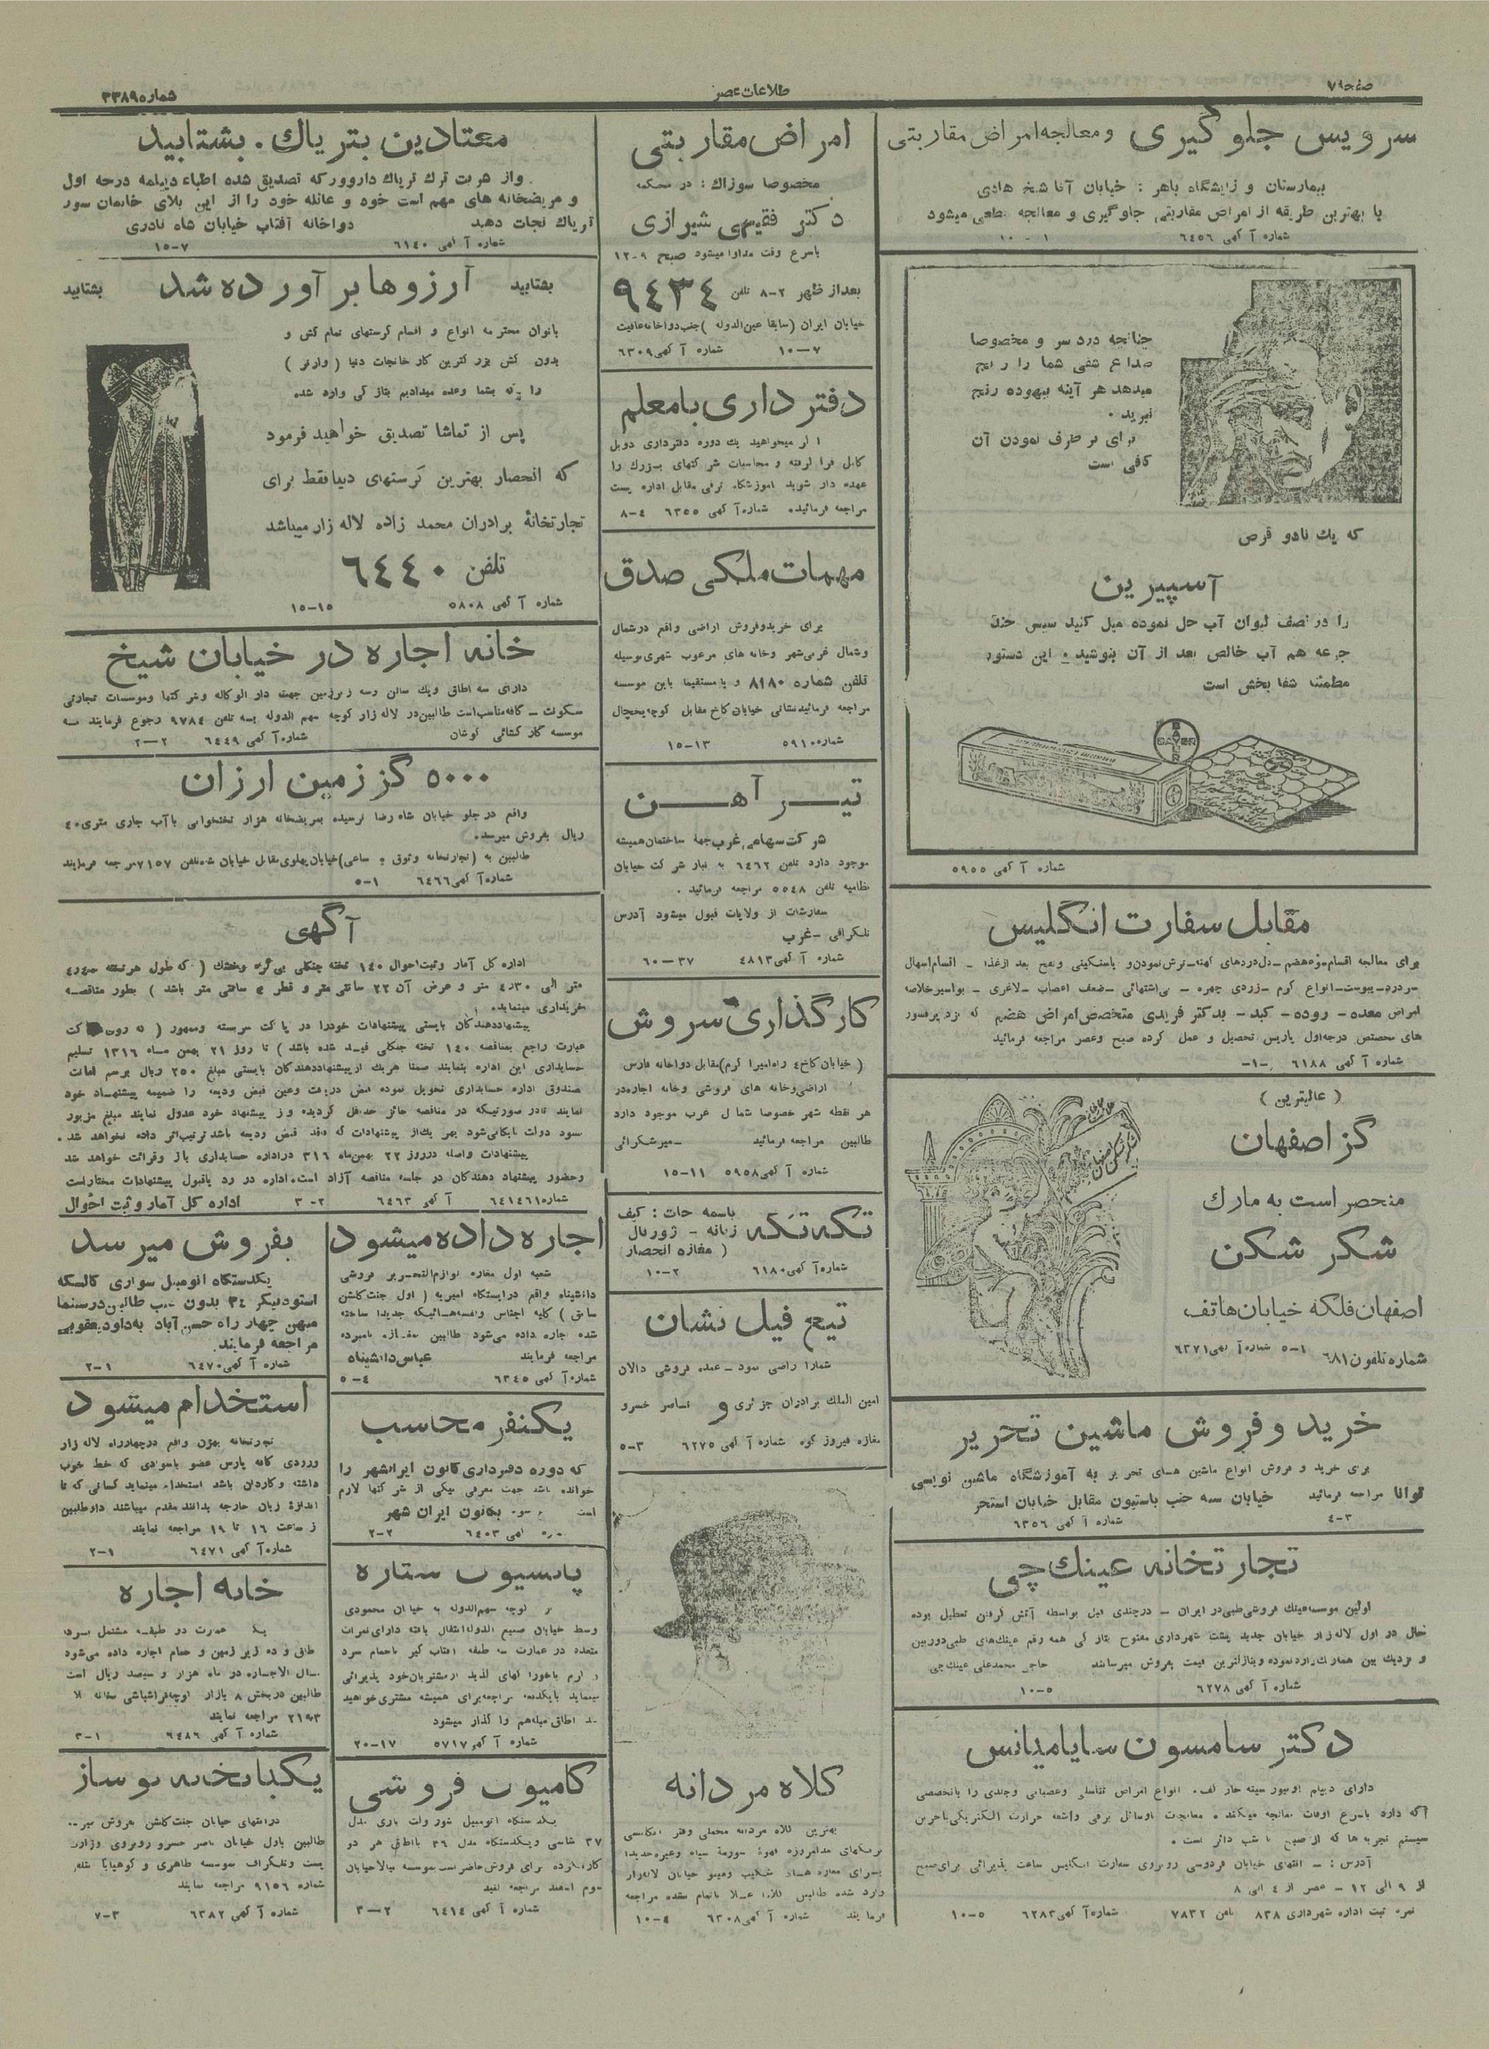 صفحه ۷
اطلاعات عصر
شماره ۳۳۸۹
سرویس جلوگیری و معالجه امراض مقاربتی
بیمارستان و زایشگاه باهر : خیابان آقا شیخ هادی
با بهترین طریقه از امراض مقاربتی جلوگیری و معالجه قطعی میشود
شماره آگهی ۶۴۵۶ ۱-۱۰
چنانچه درد سر و مخصوصا
صداع شقی شما را رنج
میدهد هر آینه بیهوده رنج
نبرید .
برای بر طرف نمودن آن
کافی است
که یک تا دو قرص
آسپیرین
را در نصف لیوان آب حل نموده میل کنید سپس چند
جرعه هم آب خالص بعد از آن بنوشید . این دستور
مطمئنا شفا بخش است
BAYER
شماره آگهی ۵۹۵۵
مقابل سفارت انگلیس
برای معالجه اقسام سوءهضم - دل‌دردهای کهنه - ترش نمودن و یا سنگینی و نفخ بعد از غذا - اقسام اسهال
سردرد - یبوست - انواع کرم - زردی چهره - بی اشتهائی - ضعف اعصاب - لاغری - بواسیر خلاصه
امراض معده - روده - کبد - بدکتر فریدی متخصص امراض هضم که نزد پرفسور
های متخصص درجه اول پاریس تحصیل و عمل کرده صبح و عصر مراجعه فرمائید
شماره آگهی ۶۱۸۸ -۱-
( عالیترین )
گز اصفهان
منحصر است به مارک
شکر شکن
اصفهان فلکه خیابان هاتف
شماره تلفون ۶۸۱ ۱-۵ شماره آگهی ۶۳۷۱
خرید و فروش ماشین تحریر
برای خرید و فروش انواع ماشین های تحریر به آموزشگاه ماشین نویسی
توانا مراجعه فرمائید خیابان سه جنب باستیون مقابل خیابان استخر
۳-۴ شماره آگهی ۶۳۵۶
تجارتخانه عینک چی
اولین موسسه عینک فروشی طبی در ایران - در چندی قبل بواسطه آتش گرفتن تعطیل بوده
حال در اول لاله زار خیابان جدید پشت شهرداری مفتوح بتازگی همه رقم عینک‌های طبی دوربین
و نزدیک بین همارک وارد نموده و بنازلترین قیمت بفروش میرسانند حاجی محمدعلی عینک چی
شماره آگهی ۶۲۷۸ ۵-۱۰
دکتر سامسون سایامیانس
دارای دیپلم
انواع امراض تناسلی و عصبانی و جلدی را با تخصصی
که دارد باسرع اوقات معالجه میکند . معالجات باوسائل برقی و اشعه حرارت الکتریکی با خرین
سیستم تجربه ها که از صبح تا شب دائر است .
آدرس : - انتهای خیابان فردوسی روبروی سفارت انگلیس ساعت پذیرائی برای صبح
از ۹ الی ۱۲ - عصر از ۴ الی ۸
نمره ثبت اداره شهرداری ۸۳۸ تلفن ۷۸۳۲ شماره آگهی ۶۲۸۳ ۵-۱۰
امراض مقاربتی
مخصوصا سوزاک : در محکمه
دکتر فقیهی شیرازی
باسرع وقت مداوا میشود صبح ۹-۱۲
بعد از ظهر ۲-۸ تلفن ۹۴۳۴
خیابان ایران (سابقا عین الدوله) جنب دواخانه عافیت
۷-۱۰ شماره آگهی ۶۳۰۹
دفتر داری با معلم
اگر میخواهید یک دوره دفترداری دوبل
کامل فرا گرفته و محاسبات شرکتهای بزرگ را
عهده دار شوید آموزشگاه ترقی مقابل اداره پست
مراجعه فرمائید. شماره آگهی ۶۳۵۵ ۴-۸
مهمات ملکی صدق
برای خرید و فروش اراضی واقع در شمال
و شمال غربی شهر و خانه های مرغوب شهری بوسیله
تلفن شماره ۸۱۸۰ و یا مستقیما باین موسسه
مراجعه فرمائید نشانی خیابان کاخ مقابل کوچه یخچال
شماره ۵۹۱۰ ۱۳-۱۵
تیر آهن
شرکت سهامی غرب جهة ساختمان همیشه
موجود دارد تلفن ۶۴۶۲ به انبار شرکت خیابان
نظامیه تلفن ۵۵۴۸ مراجعه فرمائید .
سفارشات از ولایات قبول میشود آدرس
تلگرافی - غرب
شماره آگهی ۴۸۱۳ ۳۷-۶۰
کارگذاری سروش
( خیابان کاخ ۴ راه امیرا کرم ) مقابل دواخانه فارس
اراضی و خانه های فروشی و خانه اجاره در
هر نقطه شهر خصوصا شمال غرب موجود دارد
طالبین مراجعه فرمائید - میرشکرائی
شماره آگهی ۵۹۵۸ ۱۱-۱۵
تکه تکه
باسمه جات : کیف
زنانه - ژورنال
( مغازه انحصار
شماره آگهی ۶۱۸۰ ۲-۱۰
تیغ فیل نشان
شمارا راضی نمود - عمده فروشی دالان
امین الملک برادران جزئری و ناصر خسرو
مغازه فیروز کوه شماره آگهی ۶۲۷۵ ۳-۵
کلاه مردانه
بهترین کلاه مردانه مخملی وفتر انگلیسی
برنگهای مد امروزه قهوه سورمه سیاه و غیره جدیدا
وارد شده طالبین
مراجعه
فرمایند شماره آگهی ۶۳۰۸ ۴-۱۰
معتادین بتریاک . بشتابید
و از شربت ترک تریاک داروور که تصدیق شده اطباء دیپلمه درجه اول
و مریضخانه های مهم است خود و عائله خود را از این بلای خانمان سوز
تریاک نجات دهید دواخانه آفتاب خیابان شاه نادری
شماره آگهی ۶۱۴۰ ۷-۱۵
بشتابید آرزوها بر آورده شد بشتابید
بانوان محترمه انواع و اقسام کرستهای تمام کش و
بدون کش بزرگترین کارخانجات دنیا ( وارنر )
را که بشما وعده میدادیم بتازگی وارد شده
پس از تماشا تصدیق خواهید فرمود
که انحصار بهترین کرستهای دنیا فقط برای
تجارتخانه برادران محمد زاده لاله زار میباشد
تلفن ۶۴۴۰
شماره آگهی ۵۸۰۸ ۱۵-۱۵
خانه اجاره در خیابان شیخ
دارای سه اطاق و یک سالن وسه زیرزمین جهته دار الوکاله و شرکتها و موسسات تجارتی
سکونت - کافه مناسب است طالبین در لاله زار کوچه مهم الدوله بسه تلفن ۹۷۸۴ رجوع فرمایند سه
موسسه کار گشائی کوشان شماره آگهی ۶۴۴۹ ۲-۲
۵۰۰۰ گز زمین ارزان
واقع در جلو خیابان شاه رضا نرسیده بمریضخانه هزار تختخوابی با آب جاری متری ۴۰
ریال بفروش میرسد.
طالبین به (تجارتخانه وثوق و ساعی) خیابان پهلوی مقابل خیابان شاه تلفن ۷۱۵۷ مراجعه فرمایند
شماره آگهی ۶۴۶۶ ۱-۵
آگهی
اداره کل آمار و ثبت احوال ۱۴۰ تخته جنگلی بی گره و خشک ( که طول هر تخته
متر الی ۴٫۳۰ متر و عرض آن ۲۲ سانتی متر و قطر ۴ سانتی متر باشد ) بطور مناقصه
خریداری مینماید.
پیشنهاد دهندگان بایستی پیشنهادات خود را در پاکت سربسته و ممهور
عبارت راجع بمناقصه ۱۴۰ تخته جنگلی قید شده باشد ) تا روز ۲۱ بهمن ماه ۱۳۱۶ تسلیم
حسابداری این اداره بنمایند ضمنا هریک از پیشنهاد دهندگان بایستی مبلغ ۲۵۰ ریال برسم امانت
صندوق اداره حسابداری تحویل نموده قبض دریافت وعین قبض ودیعه را ضمیمه پیشنهاد خود
نمایند تا در صورتیکه در مناقصه حائز حداقل گردیده و از پیشنهاد خود عدول نمایند مبلغ مزبور
بسود دولت بایگانی شود بهر یک از پیشنهادات که فاقد قبض ودیعه باشد ترتیب اثر داده نخواهد شد .
پیشنهادات واصله در روز ۲۲ بهمن ماه ۳۱۶ در اداره حسابداری باز و قرائت خواهد شد
وحضور پیشنهاد دهندگان در جلسه مناقصه آزاد است. اداره در رد یا قبول پیشنهادات مختار است
شماره ۶۴۱۴۶۱ آگهی ۶۴۶۳ ۲-۳ اداره کل آمار و ثبت احوال
اجاره داده میشود
شعبه اول مغازه لوازم التحریر فروشی
دانشپناه واقع در ایستگاه امیریه ( اول جنت گلشن
سابق ) کلیه اجناس و قفسه هائیکه جدیدا ساخته
شده اجاره داده می‌شود طالبین مغازه نامبرده
مراجعه فرمایند عباس دانشپناه
شماره آگهی ۶۳۴۵ ۴-۵
یکنفر محاسب
که دوره دفترداری کانون ایرانشهر را
خوانده باشد جهت معرفی بیکی از شرکتها لازم
است بکانون ایران شهر
آگهی ۶۴۰۳ ۲-۲
پانسیون ستاره
از کوچه مهم‌الدوله به خیابان محمودی
وسط خیابان صنیع الدوله انتقال یافته دارای نمرات
متعدد در عمارت سه طبقه آفتاب گیر با حمام سرد
و گرم با خوراکهای لذیذ از مشتریان خود پذیرائی
مینماید با یکدفعه مراجعه برای همیشه مشتری خواهید
شد اطاق مبله هم واگذار میشود
شماره آگهی ۵۷۱۷ ۱۷-۲۰
کامیون فروشی
یکدستگاه اتومبیل شورولت باری مدل
۳۷ شاسی و یکدستگاه مدل ۳۶ با اطاق هر دو
کار نکرده برای فروش حاضر است موسسه میلا خیابان
سوم اسفند مراجعه کنید
شماره آگهی ۶۴۱۴ ۲-۳
بفروش میرسد
یکدستگاه اتومبیل سواری کالسکه
استودبیکر ۳۴ بدون عیب طالبین در سینما
میهن چهارراه حسن آباد به داود یعقوبی
مراجعه فرمایند.
شماره آگهی ۶۴۷۰ ۱-۲
استخدام میشود
تجارتخانه بهژن واقع در چهارراه لاله زار
ورودی کافه پارس عضو باسوادی که خط خوب
داشته و کاردان باشد استخدام مینماید کسانی که تا
اندازهٔ زبان خارجه بدانند مقدم میباشند داوطلبین
از ساعت ۱۶ تا ۱۹ مراجعه نمایند
شماره آگهی ۶۴۷۱ ۱-۲
خانه اجاره
یک عمارت دو طبقه مشتمل بر سیزده
طاق و ده زیر زمین و حمام اجاره داده می‌شود
مال الاجاره در ماه هزار و سیصد ریال است
طالبین در بخش ۸ بازار کوچه فراشباشی
مراجعه نمایند
شماره آگهی ۶۴۸۶ ۱-۳
یکباب خانه نوساز
در انتهای خیابان جنت گلشن بفروش میرسد
طالبین باول خیابان ناصر خسرو روبروی وزارت
پست و تلگراف موسسه طاهری و کوهپایا تلفن
شماره ۹۱۵۶ مراجعه نمایند
شماره آگهی ۶۳۸۲ ۳-۷